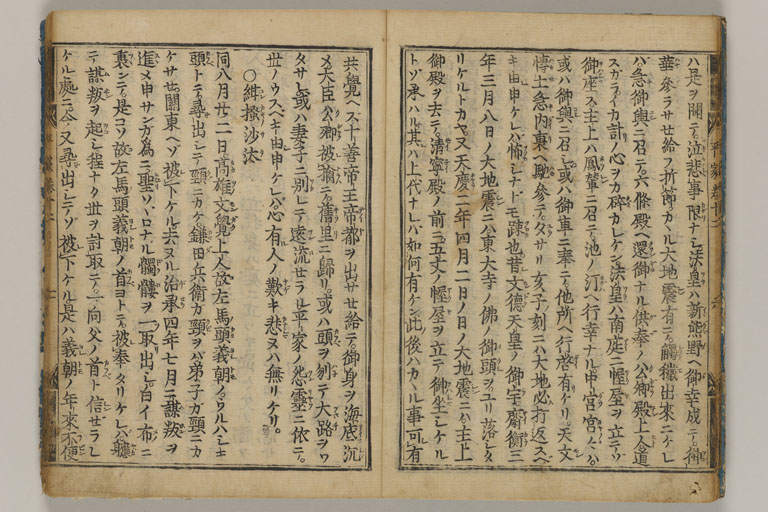 ハ是ヲ聞テ泣悲事限ナシ法皇ハ新熊野ヘ御幸成テ御
華參ラサセ給フ折節カヽル大地震有テ觸穢出來ニケレ
バ急御輿ニ召テ六條殿ヘ還御ナル供奉ノ公卿殿上人道
スガライカ計ノ心ヲカ碎カレケン法皇ハ南庭ニ幄屋ヲ立テソ
御座ス主上ハ鳳輦ニ召テ池ノ汀ヘ行幸ナル中宮宮々ハ
或ハ御輿ニ召シ或ハ御車ニ奉テ他所ヘ行啓有ケリ天文
博士急内裏ヘ馳參テ夕サリ亥子刻ニハ大地必打返スベ
キ由申ケレバ怖シナドモ疎也昔文德天皇ノ御宇齋衡三
年三月八日ノ大地震ニハ東大寺ノ佛ノ御頭ヲユリ落シタ
リケルトカヤ又天慶二年四月二日ノ日ノ大地震ニハ主上
御殿ヲ去テ清寧殿ノ前ニ五丈ノ幄屋ヲ立テ御坐シケル
トソ承ハル其ハ上代ナレバ如何有ケン此後ハカヽル事可有
共覺ヘス十善帝王帝都ヲ出サセ給テ御身ヲ海底沉
メ大臣公卿被擒テ舊里ニ歸リ或ハ頭ヲ刎テ大路ヲワ
タサレ或ハ妻子ニ別レテ遠流セラル平家ノ怨靈ニ依テ
世ノウスベキ由申ケレバ心有人ノ歎キ悲ヌハ無リケリ。
○紺掻沙汰
同八月廿二日高雄文覺上人故左馬頭義朝ノウルハシキ
頭トテ尋出シテ頸ニカケ鎌田兵衛カ頸ヲバ弟子ガ頸ニカ
ケサセ關東ヘゾ被下ケル去ヌル治承四年七月ニ謀叛ヲ
進メ申サンガ爲ニ聖ソヾロナル髑髏ヲ一取出シ白イ布ニ
裹ンテ是コソ故左馬頭義朝ノ首ヨトテ被奉タリケレバ軈
テ謀叛ヲ起シ程ナク世ヲ討取テ一向父ノ首ト信セラレ
ケル處ニ今又尋出シテゾ被下ケル是ハ義朝ノ年來不便